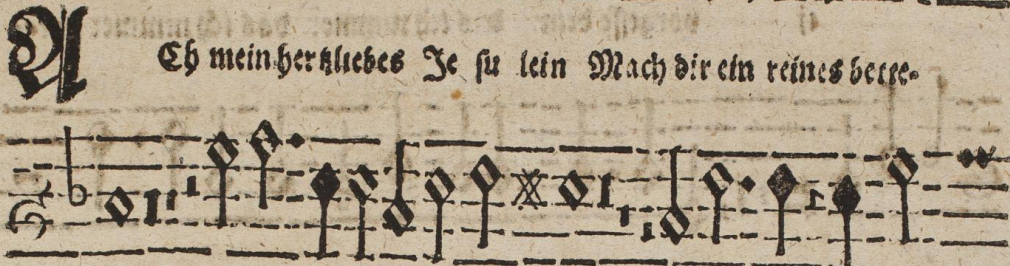 ACh mein hertzliebes Je su lein Mach dir ein reines bette-